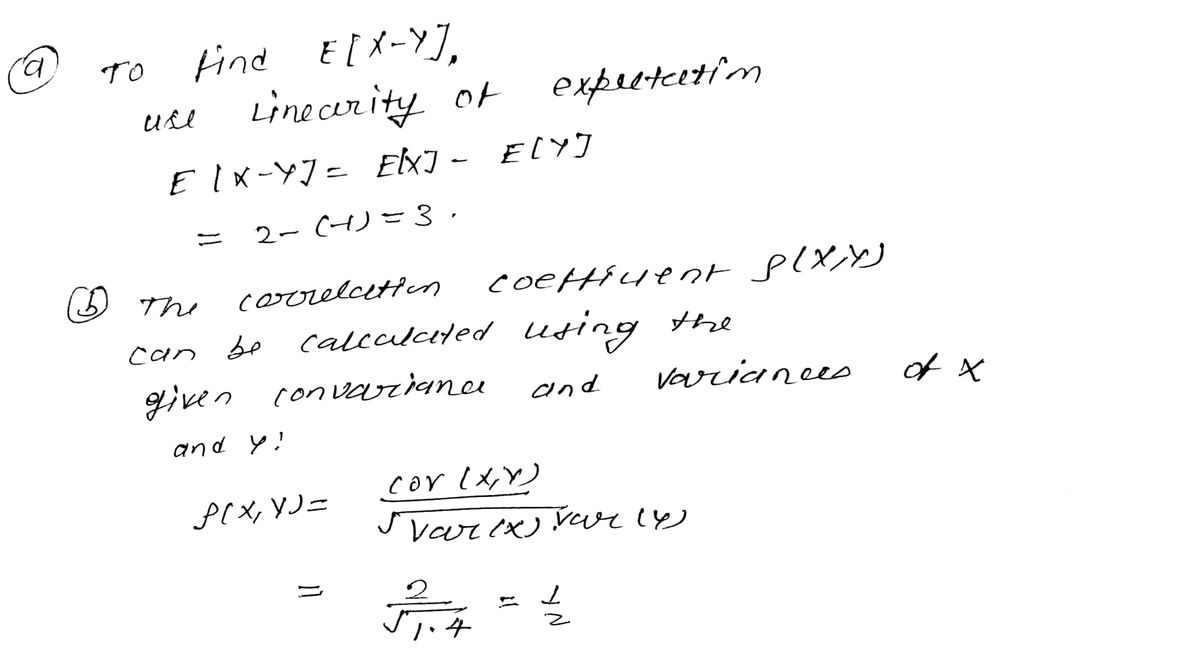 (a) To find E[X-Y],
use Linearity of expectation
E[X-Y] = E[X] - E[Y]
= 2 - (-1) = 3.
(b) The correlation coefficient ρ(X,Y)
can be calculated using the
given convariance and variances of X
and Y:
ρ(X,Y) = cov(X,Y) / √Var(X) Var(Y)
= 2 / √1.4 = 1/2